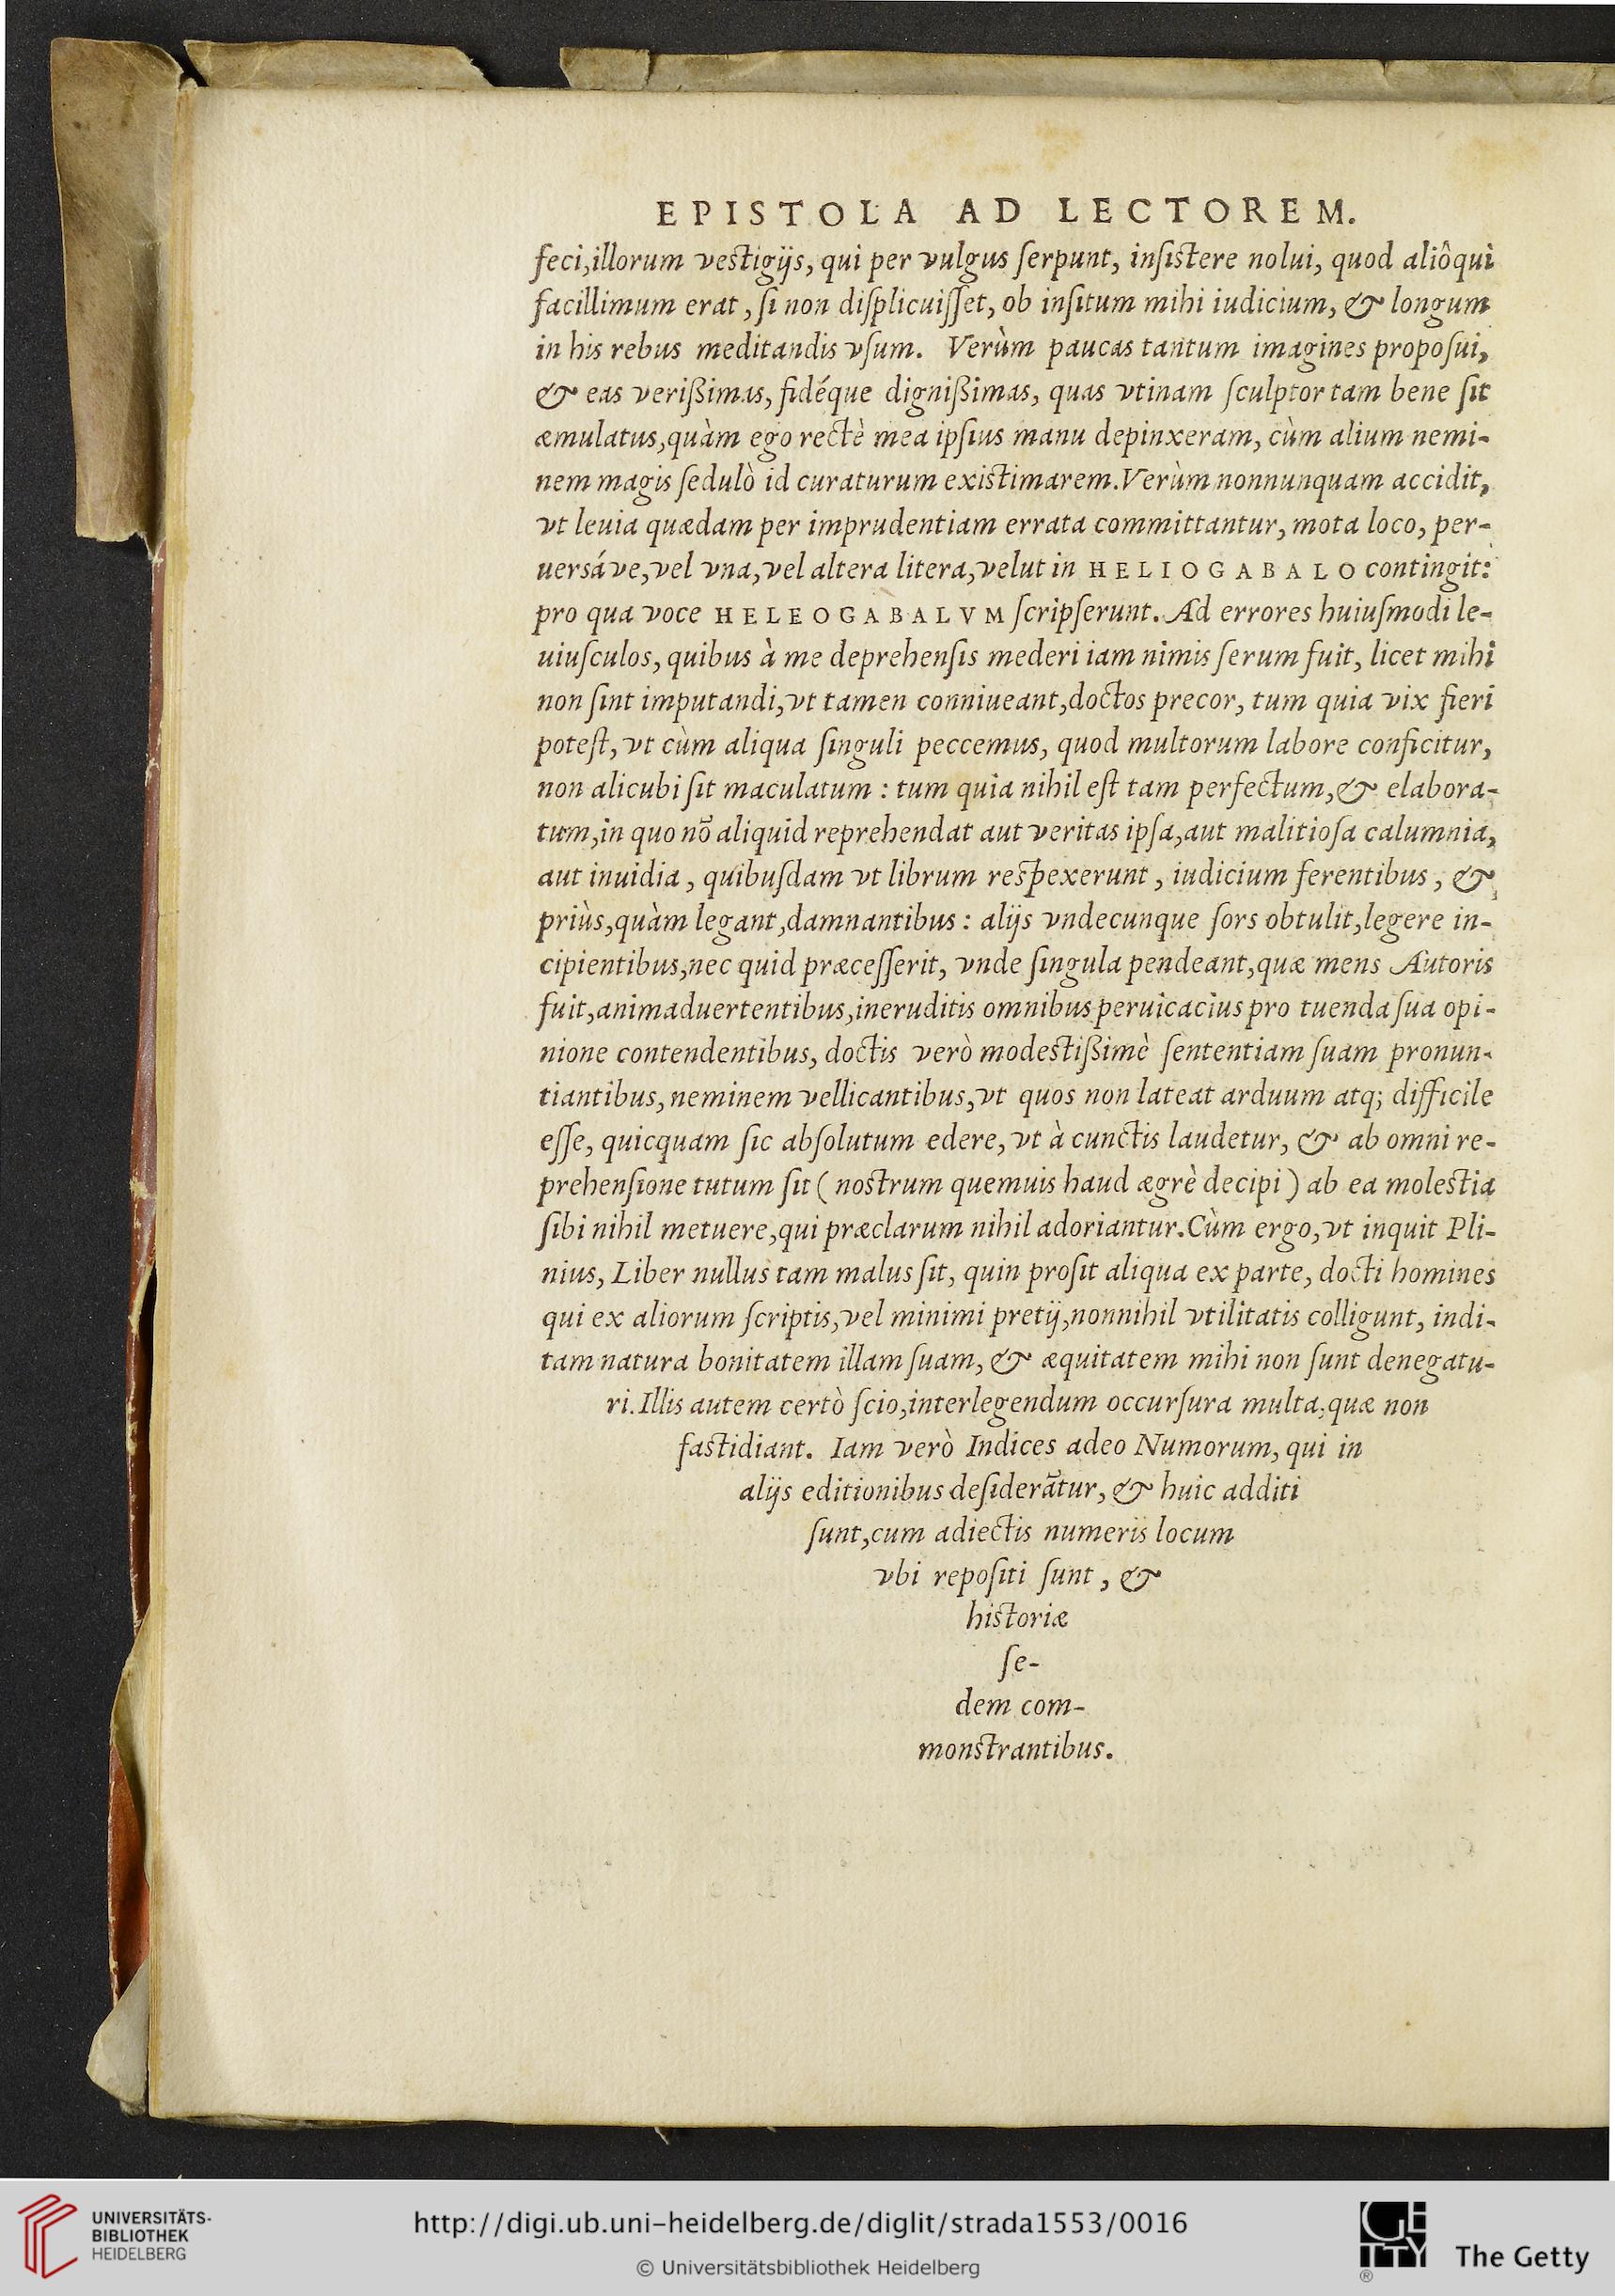 EPISTOLA AD LECTOREM.
feci,illorum vestigijs, qui per vulgus ſerpunt, inſistere nolui, quod aliôqui
facillimum erat, ſi non diſplicuiſſet, ob inſitum mihi iudicium, & longum
in his rebus meditandis vſum. Verùm paucas tantum imagines propoſui,
& eas verißimas, fidéque dignißimas, quas vtinam ſculptor tam bene ſit
æmulatus,quàm ego rectè mea ipſius manu depinxeram, cùm alium nemi-
nem magis ſedulò id curaturum existimarem.Verùm nonnunquam accidit,
vt leuia quædam per imprudentiam errata committantur, mota loco, per-
uersáve,vel vna,vel altera litera,velut in HELIOGABALO contingit:
pro qua voce HELEOGABALVM ſcripſerunt. Ad errores huiuſmodi le-
uiuſculos, quibus à me deprehenſis mederi iam nimis ſerum fuit, licet mihi
non ſint imputandi,vt tamen conniueant,doctos precor, tum quia vix fieri
poteſt, vt cùm aliqua ſinguli peccemus, quod multorum labore conficitur,
non alicubi ſit maculatum : tum quia nihil eſt tam perfectum,& elabora-
tum,in quo nō aliquid reprehendat aut veritas ipſa,aut malitioſa calumnia,
aut inuidia, quibuſdam vt librum respexerunt, iudicium ferentibus, &
priùs,quàm legant,damnantibus : alijs vndecunque ſors obtulit,legere in-
cipientibus,nec quid præceſſerit, vnde ſingula pendeant,quæ mens Autoris
fuit,animaduertentibus,ineruditis omnibus peruicacius pro tuenda ſua opi-
nione contendentibus, doctis verò modestißimè ſententiam ſuam pronun-
tiantibus, neminem vellicantibus,vt quos non lateat arduum atq; difficile
eſſe, quicquam ſic abſolutum edere, vt à cunctis laudetur, & ab omni re-
prehenſione tutum ſit ( nostrum quemuis haud ægrè decipi ) ab ea molestia
ſibi nihil metuere,qui præclarum nihil adoriantur.Cùm ergo, vt inquit Pli-
nius, Liber nullus tam malus ſit, quin proſit aliqua ex parte, docti homines
qui ex aliorum ſcriptis,vel minimi pretij,nonnihil vtilitatis colligunt, indi-
tam natura bonitatem illam ſuam, & æquitatem mihi non ſunt denegatu-
ri. Illis autem certò ſcio,inter legendum occurſura multa,quæ non
fastidiant. Iam verò Indices adeo Numorum, qui in
alijs editionibus deſiderātur, & huic additi
ſunt,cum adiectis numeris locum
vbi repoſiti ſunt, &
historiæ
ſe-
dem com-
monstrantibus.
UNIVERSITÄTS-
BIBLIOTHEK
HEIDELBERG
http://digi.ub.uni-heidelberg.de/diglit/strada1553/0016
© Universitätsbibliothek Heidelberg
GETTY
®
The Getty